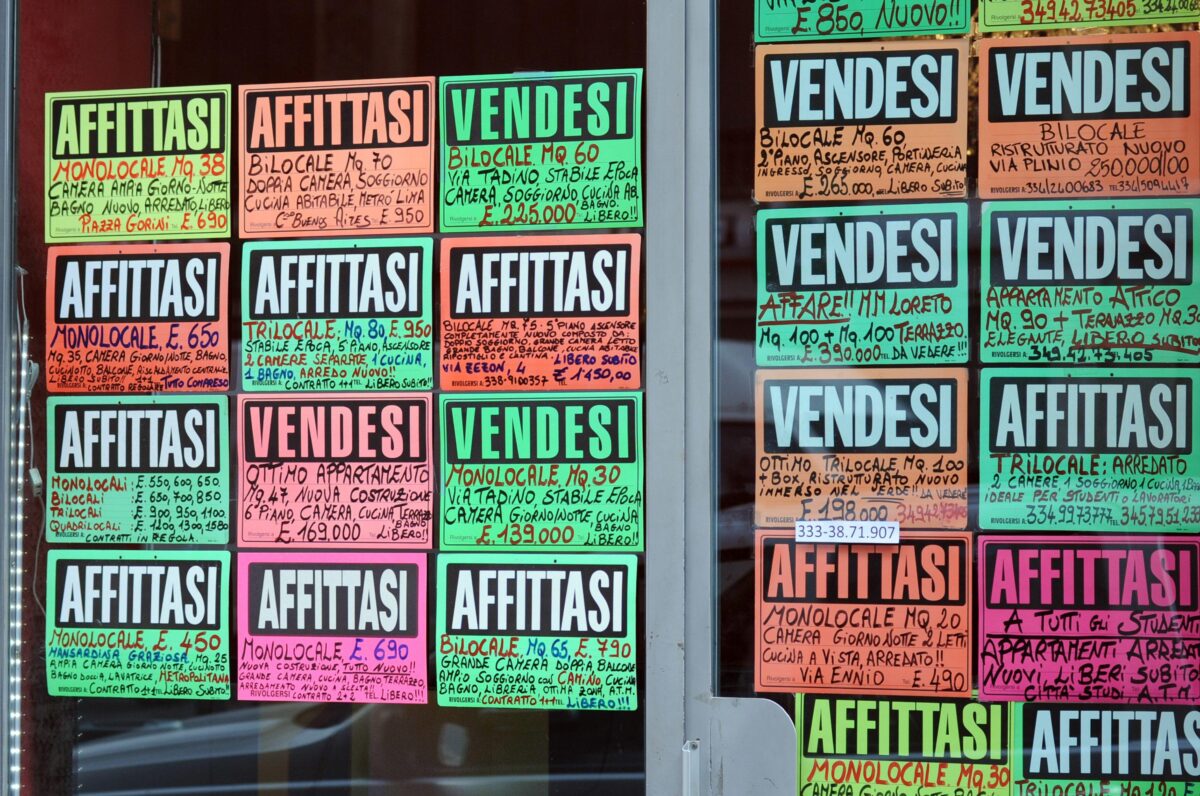 AFFITTASI
MONOLOCALE MQ. 38
CAMERA AMPIA GIORNO-NOTTE
BAGNO NUOVO, ARREDATO, LIBERO
PIAZZA GORINI £. 690
AFFITTASI
BILOCALE MQ. 70
DOPPIA CAMERA, SOGGIORNO
CUCINA ABITABILE, METRO LIMA
C.so BUENOS AIRES £. 950
VENDESI
BILOCALE MQ. 60
VIA TADINO, STABILE EPOCA
CAMERA, SOGGIORNO, CUCINA AB.
BAGNO.
£. 225.000 LIBERO!!
AFFITTASI
MONOLOCALE, £. 650
MQ. 35, CAMERA GIORNO/NOTTE, BAGNO,
CUCINOTTO, BALCONE, RISCALDAMENTO CENTRALE
LIBERO SUBITO!! 1+1 TUTTO COMPRESO
CONTRATTO REGOLARE
AFFITTASI
TRILOCALE: MQ. 80, £. 950
STABILE EPOCA, 5° PIANO, ASCENSORE
2 CAMERE SEPARATE, 1 CUCINA,
1 BAGNO, ARREDO NUOVO!!
CONTRATTO 1+1 TEL. LIBERO SUBITO!!
AFFITTASI
BILOCALE MQ. 75 - 5° PIANO ASCENSORE
COMPLETAMENTE NUOVO COMPOSTO DA:
DOPPIO SOGGIORNO, GRANDE CAMERA LETTO
GRANDE BAGNO, BALCONE, CUCINA ABITABILE
RIPOSTIGLIO E CANTINA. LIBERO SUBITO
VIA ZEZON, 4
338-9100357 £ 1'150,00
AFFITTASI
MONOLOCALI : £. 550, 600, 650
BILOCALI : £. 650, 700, 850
TRILOCALI : £. 900, 950, 1100
QUADRILOCALI : £. 1200, 1300, 1580
CONTRATTI IN REGOLA.
VENDESI
OTTIMO APPARTAMENTO
MQ. 47, NUOVA COSTRUZIONE
6° PIANO, CAMERA, CUCINA TERRAZZO
BAGNO
£. 169.000 LIBERO!!
VENDESI
MONOLOCALE, MQ. 30
VIA TADINO, STABILE EPOCA
CAMERA GIORNO/NOTTE CUCINA
BAGNO
£. 139.000 LIBERO!!
AFFITTASI
MONOLOCALE £. 450
MANSARDINA GRAZIOSA, MQ. 25
AMPIA CAMERA GIORNO NOTTE, CUCINOTTO
BAGNO DOCCIA, LAVATRICE, METROPOLITANA
RIVOLGERSI A: CONTRATTO 1+1 LIBERO SUBITO!
AFFITTASI
MONOLOCALE, £. 690
NUOVA COSTRUZIONE, TUTTO NUOVO!!
GRANDE CAMERA, CUCINA, BAGNO, TERRAZZO,
ARREDAMENTO NUOVO A SCELTA!!
RIVOLGERSI CONTRATTO 2+2 TEL. LIBERO!!
AFFITTASI
BILOCALE, MQ. 65, £. 790
GRANDE CAMERA DOPPIA, BALCONE
AMPIO SOGGIORNO CON CAMINO, CUCINA
BAGNO, LIBRERIA, OTTIMA ZONA, A.T.M.
CONTRATTO 1+1 LIBERO!!!
£. 850, NUOVO!!
Rivolgersi a
349.42.73405
VENDESI
BILOCALE MQ. 60
2° PIANO, ASCENSORE, PORTINERIA
INGRESSO, SOGGIORNO, CAMERA, CUCINA
£. 265.000, LIBERO SUBITO
VENDESI
BILOCALE
RISTRUTTURATO NUOVO
VIA PLINIO 250.000,00
RIVOLGERSI A: 334/2600683 TEL. 334/5094417
VENDESI
AFFARE!! MM LORETO
MQ. 100 + MQ. 100 TERRAZZO
£. 390.000 DA VEDERE!!
VENDESI
APPARTAMENTO ATTICO
MQ. 90 + TERRAZZO MQ. 30
ELEGNATE, LIBERO SUBITO
349.42.73.405
VENDESI
OTTIMO TRILOCALE, MQ. 100
+ BOX, RISTRUTTURATO NUOVO
IMMERSO NEL VERDE!! DA VEDERE
£ 198.000 3494273405
333-38.71.907
AFFITTASI
TRILOCALE: ARREDATO
2 CAMERE, 1 SOGGIORNO 1 CUCINA, 1 BAG
IDEALE PER STUDENTI O LAVORATORI
RIVOLGERSI A: 334.9973.777 TEL. 345.79.51.23
AFFITTASI
MONOLOCALE MQ 20
CAMERA GIORNO NOTTE 2 LETTI
CUCINA A VISTA, ARREDATO!!
VIA ENNIO £. 490
AFFITTASI
A TUTTI GLI STUDENTI
APPARTAMENTI ARREDATI
NUOVI, LIBERI SUBITO
CITTÀ STUDI, A.T.M.
AFFITTASI
MONOLOCALE MQ. 30
CAMERA GIORNO NOTTE
AFFITTAS
TRILOCALE MQ 120